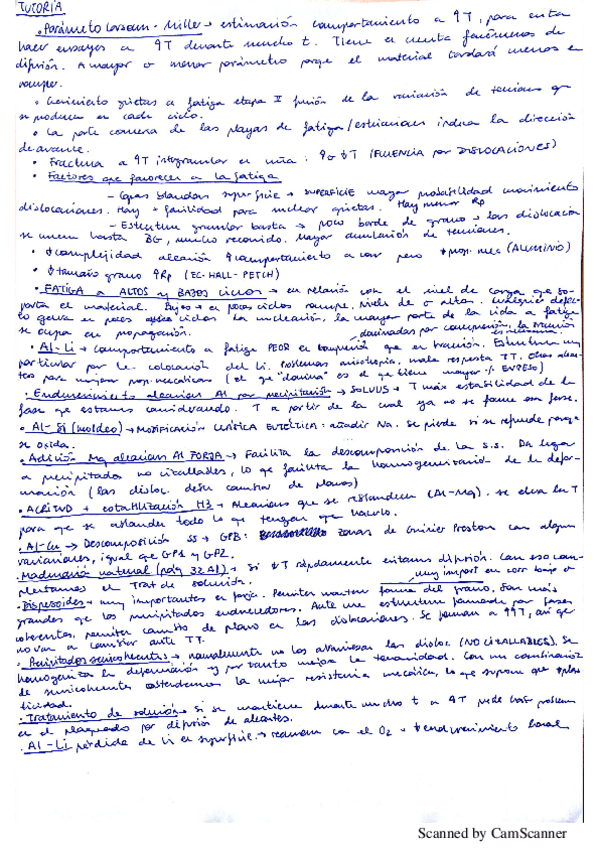 TUTORÍA
. Parámetro Larson-Miller → estimación comportamiento a ↑T, para evitar
hacer ensayos a ↑T durante mucho t. Tiene en cuenta fenómenos de
difusión. A mayor σ menor parámetro porque el material tardará menos en
romper.
• Crecimiento grietas a fatiga etapa II función de la variación de tensiones que
se producen en cada ciclo.
• La parte convexa de las playas de fatiga/estriaciones indica la dirección
de avance.
• Fractura a ↑T intergranular en cuña: ↑σ ↓T (FLUENCIA por DISLOCACIONES)
• Factores que favorecen a la fatiga
- Capas blandas superficie → SUPERFICIE mayor probabilidad movimiento
dislocaciones. Hay + facilidad para nuclear grietas. Hay menor Rp
- Estructura granular basta → poco borde de grano → las dislocaciones
se mueven hasta BG, mucho recorrido. Mayor acumulación de tensiones.
• ↓complejidad aleación ↑comportamiento a corr pero ↓prop. mec (ALUMINIO)
• ↓tamaño grano ↑Rp (EC. HALL-PETCH)
• FATIGA a ALTOS y BAJOS CICLOS → en relación con el nivel de carga que so-
porta el material. Bajos → en pocos ciclos rompe. Niveles de σ altos. Cualquier defec-
to genera en pocos ciclos la nucleación, la mayor parte de la vida a fatiga
se ocupa en propagación.
• Al-Li → comportamiento a fatiga PEOR en compresión que en tracción. Estructura muy
particular por la colocación del Li. Problemas anisotropía, mala respuesta TT. Otros alean-
tes para mejorar prop. mecánicas (el que "domina" es el que tiene mayor % EN PESO)
. Endurecimiento aleación Al por precipitación → SOLVUS → T máx estabilidad de la
fase que estamos considerando. T a partir de la cual ya no se forma esa fase.
. Al-Si (moldeo) → MODIFICACIÓN CINÉTICA EUTÉCTICA: añadir Na. Se pierde si se refunde porque
se oxida.
. Adición Mg aleación Al FORJA → Facilita la descomposición de la S.S. Da lugar
a precipitados no cizallables, lo que facilita la homogeneización de la defor-
mación (las disloc. deben cambiar de planos)
. ACRITUD + estabilización H3 → Aleaciones que se reblandecen (Al-Mg). Se eleva la T
para que se ablande todo lo que tengan que hacerlo.
. Al-Cu → Descomposición SS → GPB: zonas de Guinier Preston con algunas
variaciones, igual que GP1 y GP2.
. Maduración natural (pág 32 Al) → Si ↓T rápidamente evitamos difusión. Con eso com-
plementamos el Trat de solución.
. Dispersoides → muy importantes en forja. Permiten mantener forma del grano. Son más
grandes que los precipitados endurecedores. Ante una estructura formada por fases
coherentes, permiten cambio de plano en las dislocaciones. Se forman a ↑↑T, así que
no van a cambiar ante TT.
. Precipitados semicoherentes → normalmente no los atraviesan las disloc (NO CIZALLABLES). Se
homogeniza la deformación y por tanto mejora la tenacidad. Con una combinación
de semicoherentes obtendremos la mejor resistencia mecánica, lo que supone que ↓plas-
ticidad.
. Tratamiento de solución → si se mantiene durante mucho t a ↑T puede haber problemas
en el plaqueado por difusión de aleantes.
. Al-Li pérdida de Li en superficie → reacciona con el O2 → ↓endurecimiento local
Scanned by CamScanner